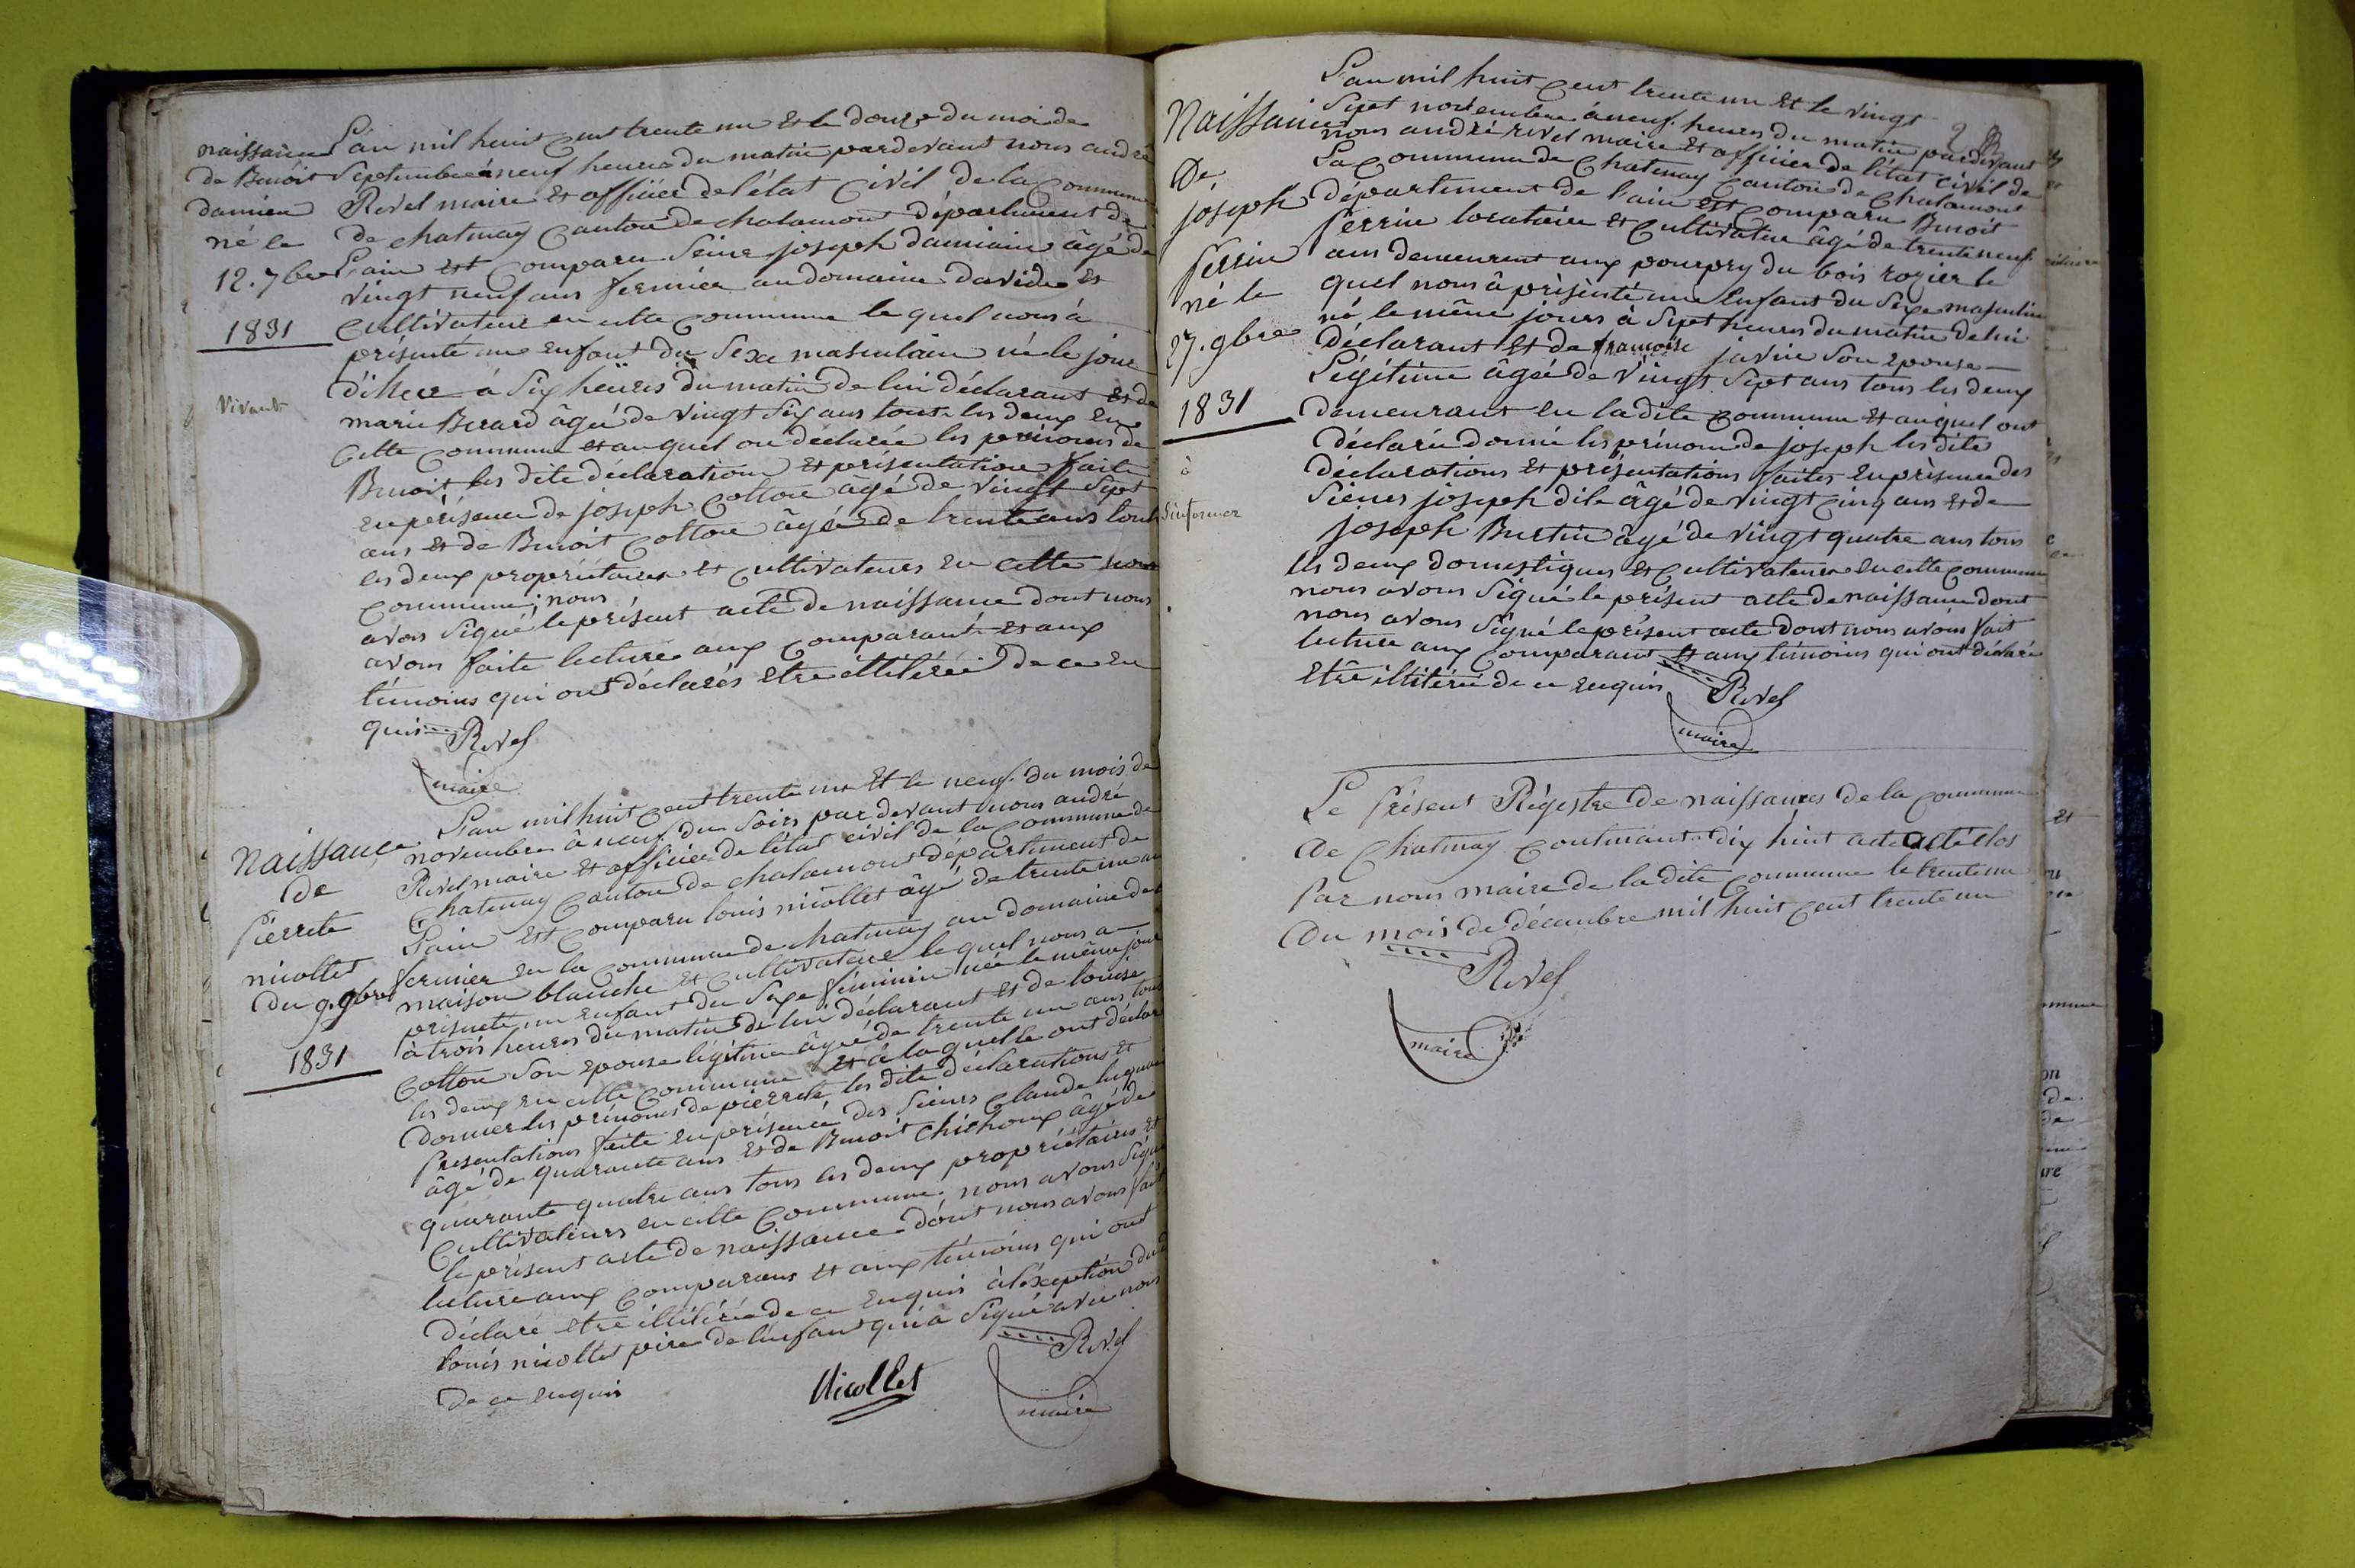 naissance
de Benoit
damien
né le
12. 7bre
1831
Vivant
L'an mil huit cent trente un et le douze du moi de
Septembre à neuf heures du matin pardevant nous andré
Revel maire et officier de l'état Civil de la Commune
de chatenay Canton de chalamont département de
L'ain est Comparu Sieur joseph damiain âgé de
vingt neuf ans fermier au domaine david et
Cultivateur en cette Commune le quel nous à
présenté une enfant du Sexe masculain né le jour
d'iller à Six heures du matin de lui déclarant et de
marie Berard âgée de vingt Six ans tout les deux en
Cette Commune et au quel on déclarée les prénoms de
Benoit les dite déclaration et présentation faite
en présence de joseph Cotton âgé de vingt Sept
ans et de Benoit Cotton âgée de trente ans tout
les deux propriétaires et Cultivateurs en cette
Commune ; nous
avons Signé le présent acte de naissance dont nous
avons faite lecture aux Comparant et aux
témoins qui ont déclarés etre illitérée de ce en
quis Revel
maire
Naissance
de
Pierrete
nicollet
du 9. 9bre
1831
L'an mil huit cent trente un et le neuf du mois de
novembre à neuf du Soirs par devant nous andré
Revel maire et officier de l'état civil de la Commune de
Chatenay Canton de chalamont département de
L'ain est Comparu louis nicollet âgé de trente un an
fermier en la Commune de chatenay au domaine de
maison blanche et cultivateur le quel nous a
présenté un enfant du Sexe féminin née le même jour
à trois heures du matin de lui déclarant et de louise
Cotton Son epouse légitime âgée de trente un ans tous
les deux en cette Commune et à la quelle ont déclaré
donner les prénoms de pierrete les dite déclarations et
Presentations faite en présence des Sieurs Claude
âgé de quarante ans et de Benoit Chichoux âgé de
quarante quatre ans tous les deux propriétaires et
Cultivateurs en cette Commune. nous avons Signé
le présent acte de naissance dont nous avons fait
lecture aux Comparans et aux témoins qui ont
déclaré etre illitérée de ce enquis à l'exception du
louis nicollet père de l'enfant qui a Signé avec nous
de ce enquis
Nicollet
Revel
maire
Naissance
De
joseph
Perrin
né le
27. 9bre
1831
à
S'informer
L'an mil huit Cent trente un et le vingt
Sept novembre à neuf heures du matin pardevant
nous andré revel maire et officier de l'état civil de
La Commune de Chatenay Canton de Chalamont
département de l'ain est Comparu Benoit
Perrin locataire et Cultivateur âgé de trente neuf
ans demeurent aux pourpry du bois rozier le
quel nous à présènté une Enfant du Sexe masculin
né le même jours à Sept heures du matin de lui
déclarant et de francoise javrie Son epouse
Légitime âgée de vingt Sept ans tous les deux
demeurant en la dite Commune et auquel ont
déclarée donné les prénom de joseph les dite
déclarations et présentations faites en présence des
Sieurs joseph dile âgé de vingt Cinq ans et de
joseph Burtin âgé de vingt quatre ans tous
les deux domestiques et Cultivateurs en cette commune
nous avons Signé le présent acte de naissance dont
nous avons Signé le présent acte dont nous avons fait
lecture aux Comparant et aux témoins qui ont déclaré
etre illitérée de ce enquis Revel
maire
Le Présent Régistre de naissances de la Commune
de Chatenay Contenant dix huit acte acté clos
Par nous maire de la dite Commune le trente un
du mois de décembre mil huit Cent trente un
Revel
maire